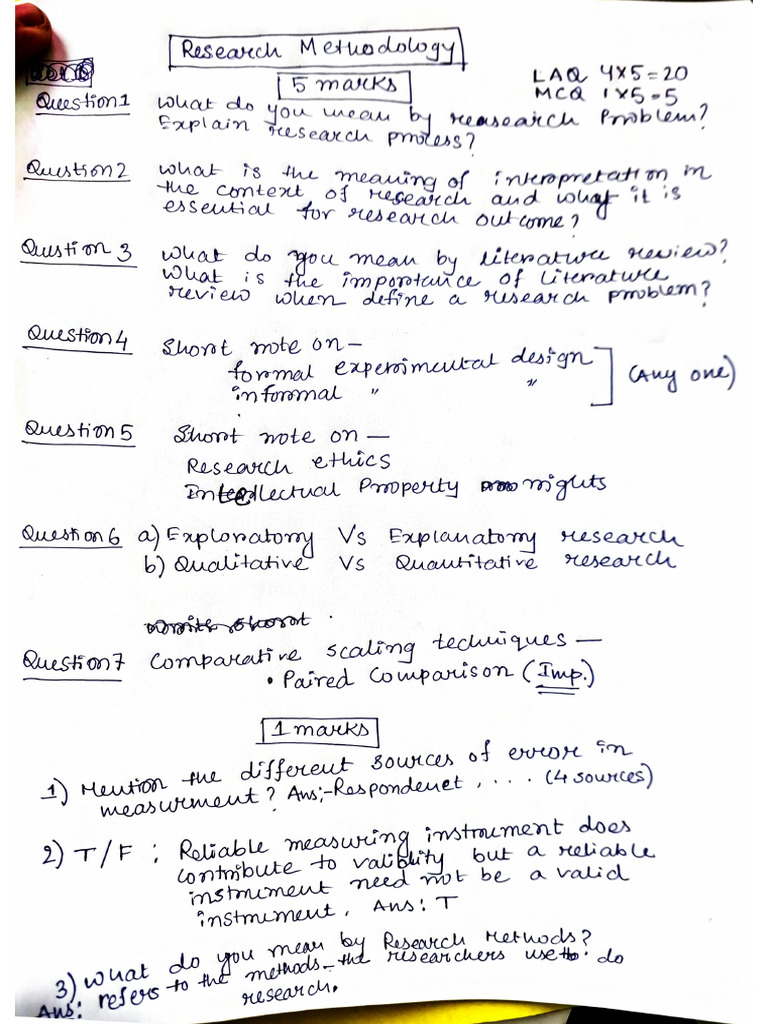 Research Methodology
5 marks
LAQ 4x5=20
MCQ 1x5=5
Question1 What do you mean by reasearch Problem?
Explain research process?
Question2 What is the meaning of interpretation in
the context of research and why it is
essential for research outcome?
Question 3 What do you mean by literature review?
What is the importance of literature
review when define a research problem?
Question4 Short note on—
formal experimental design
informal " "
(Any one)
Question5 Short note on—
Research ethics
Intellectual Property rights
Question6 a) Exploratory Vs Explanatory research
b) Qualitative Vs Quantitative research
Question7 Comparative scaling techniques—
• Paired Comparison (Imp.)
1 marks
1) Mention the different sources of error in
measurment? Ans:-Respondenet, .... (4 sources)
2) T/F : Reliable measuring instrument does
contribute to validity but a reliable
instrument need not be a valid
instrument. Ans: T
3) What do you mean by Research Methods?
Ans: refers to the methods the researchers use to do
research.